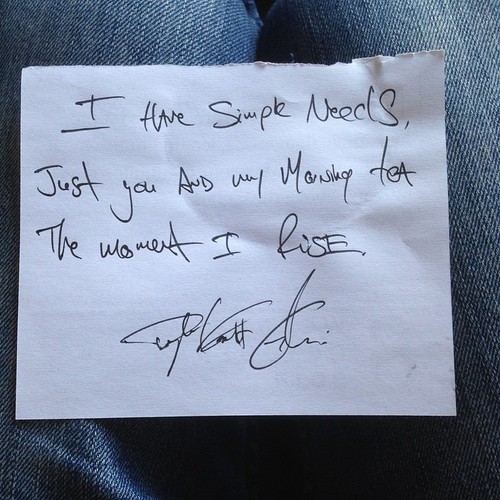 I HAVE Simple Needs,
Just you AND my Morning tea
The moment I RISE.